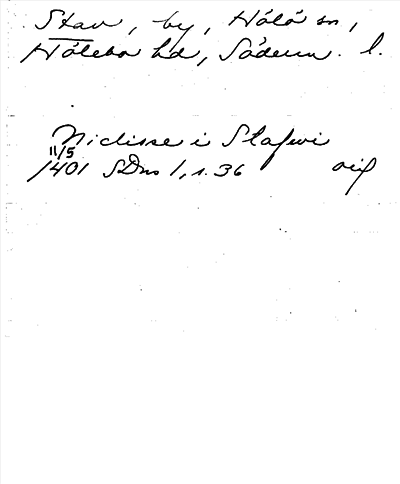 Stav, by, Hölö sn,
Hölebo hd, Söderm. l.
Niclisse i Stafwi
11/5
1401 SDns 1, s. 36 orig